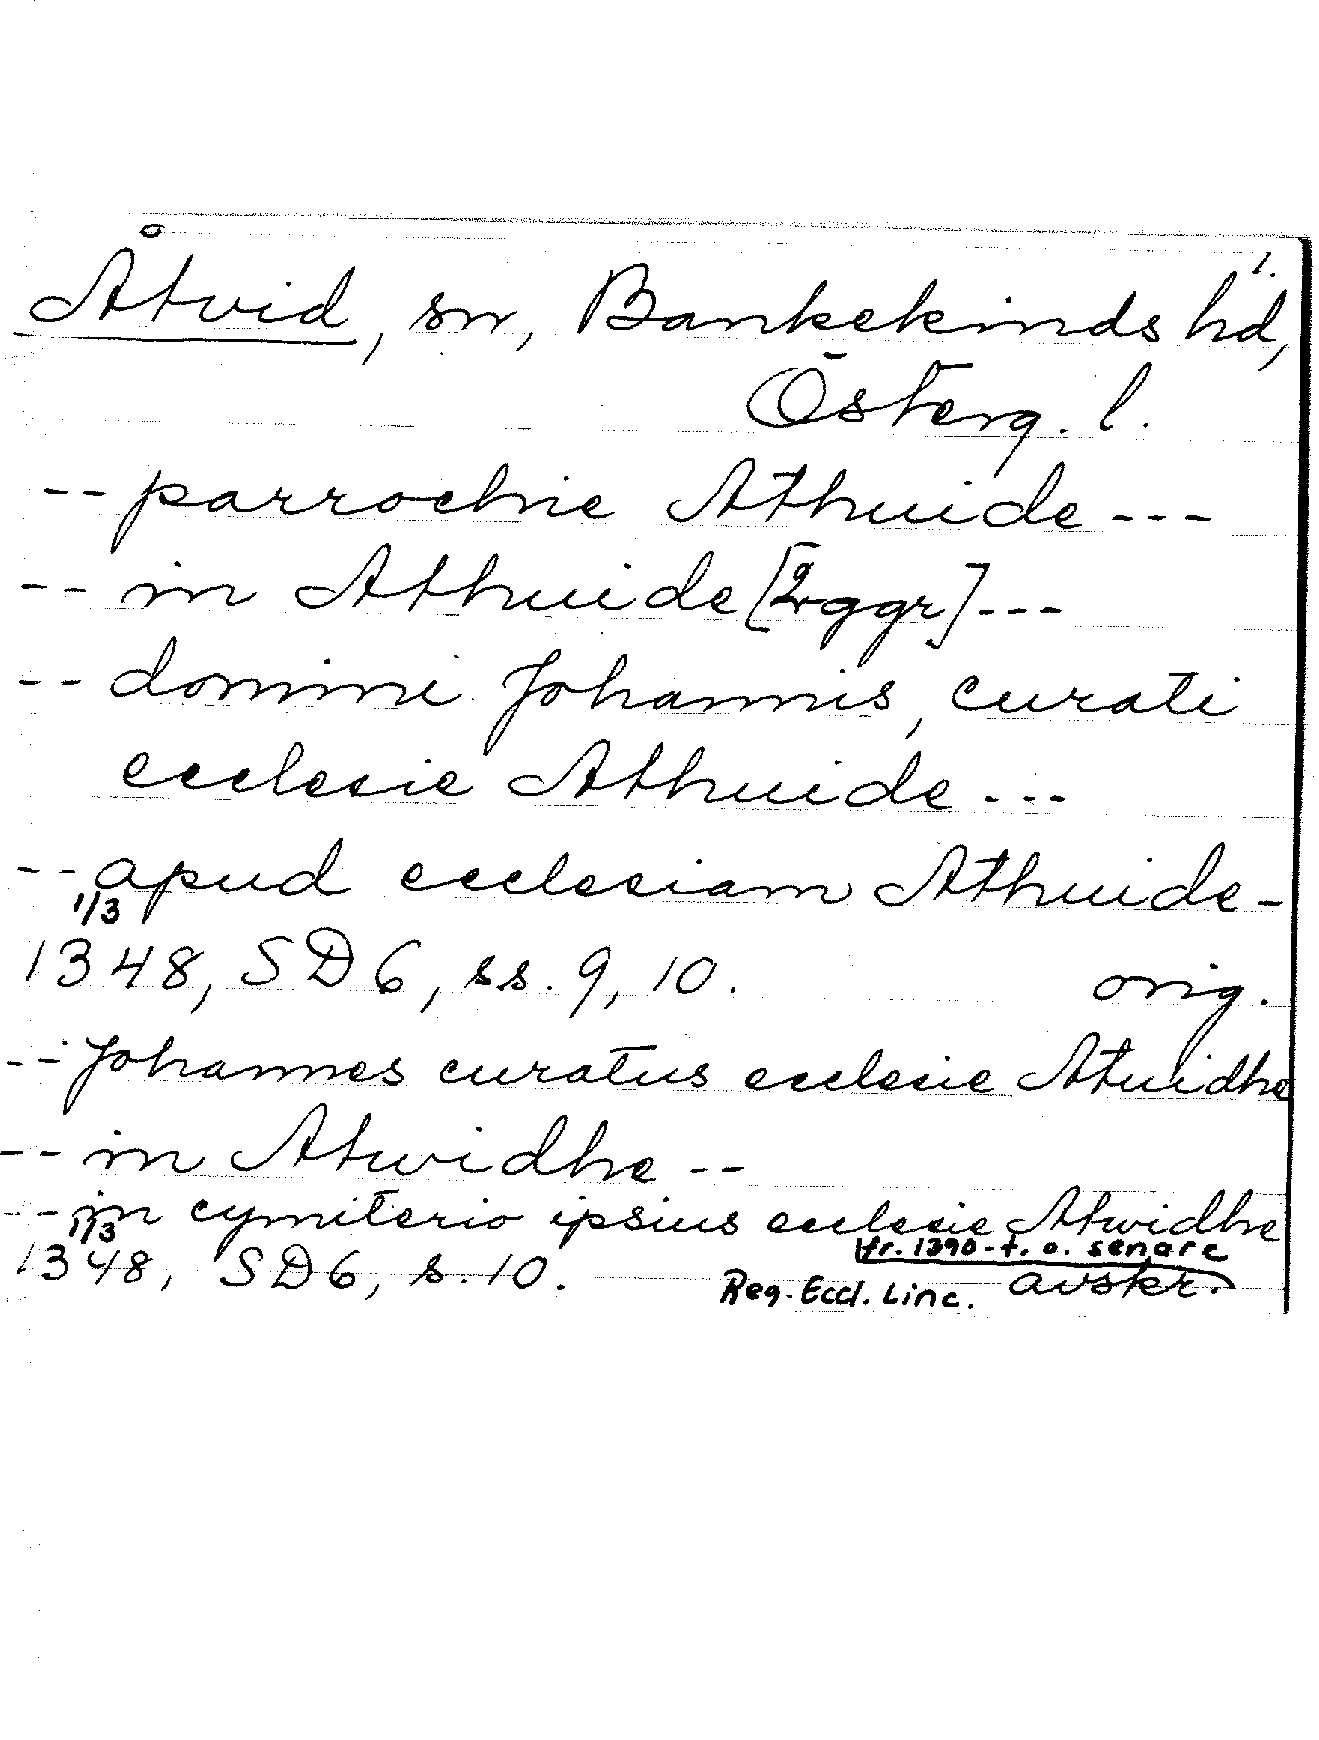 1.
Åtvid, sn, Bankekinds hd,
Österg. l.
-- parrochie Athuide ---
-- in Athuide [2 ggr] ---
-- domini Johannis, curati
ecclesie Athuide ---
-- apud ecclesiam Athuide -
1/3
1348, SD 6, ss. 9, 10. orig.
-- Johannes curatus ecclesie Atuidhe
-- in Atwidhe --
-- in cymiterio ipsius ecclesie Atwidhe
1/3 fr. 1390-t. o. senare
1348, SD 6, s. 10. Reg. Eccl. Linc. avskr.